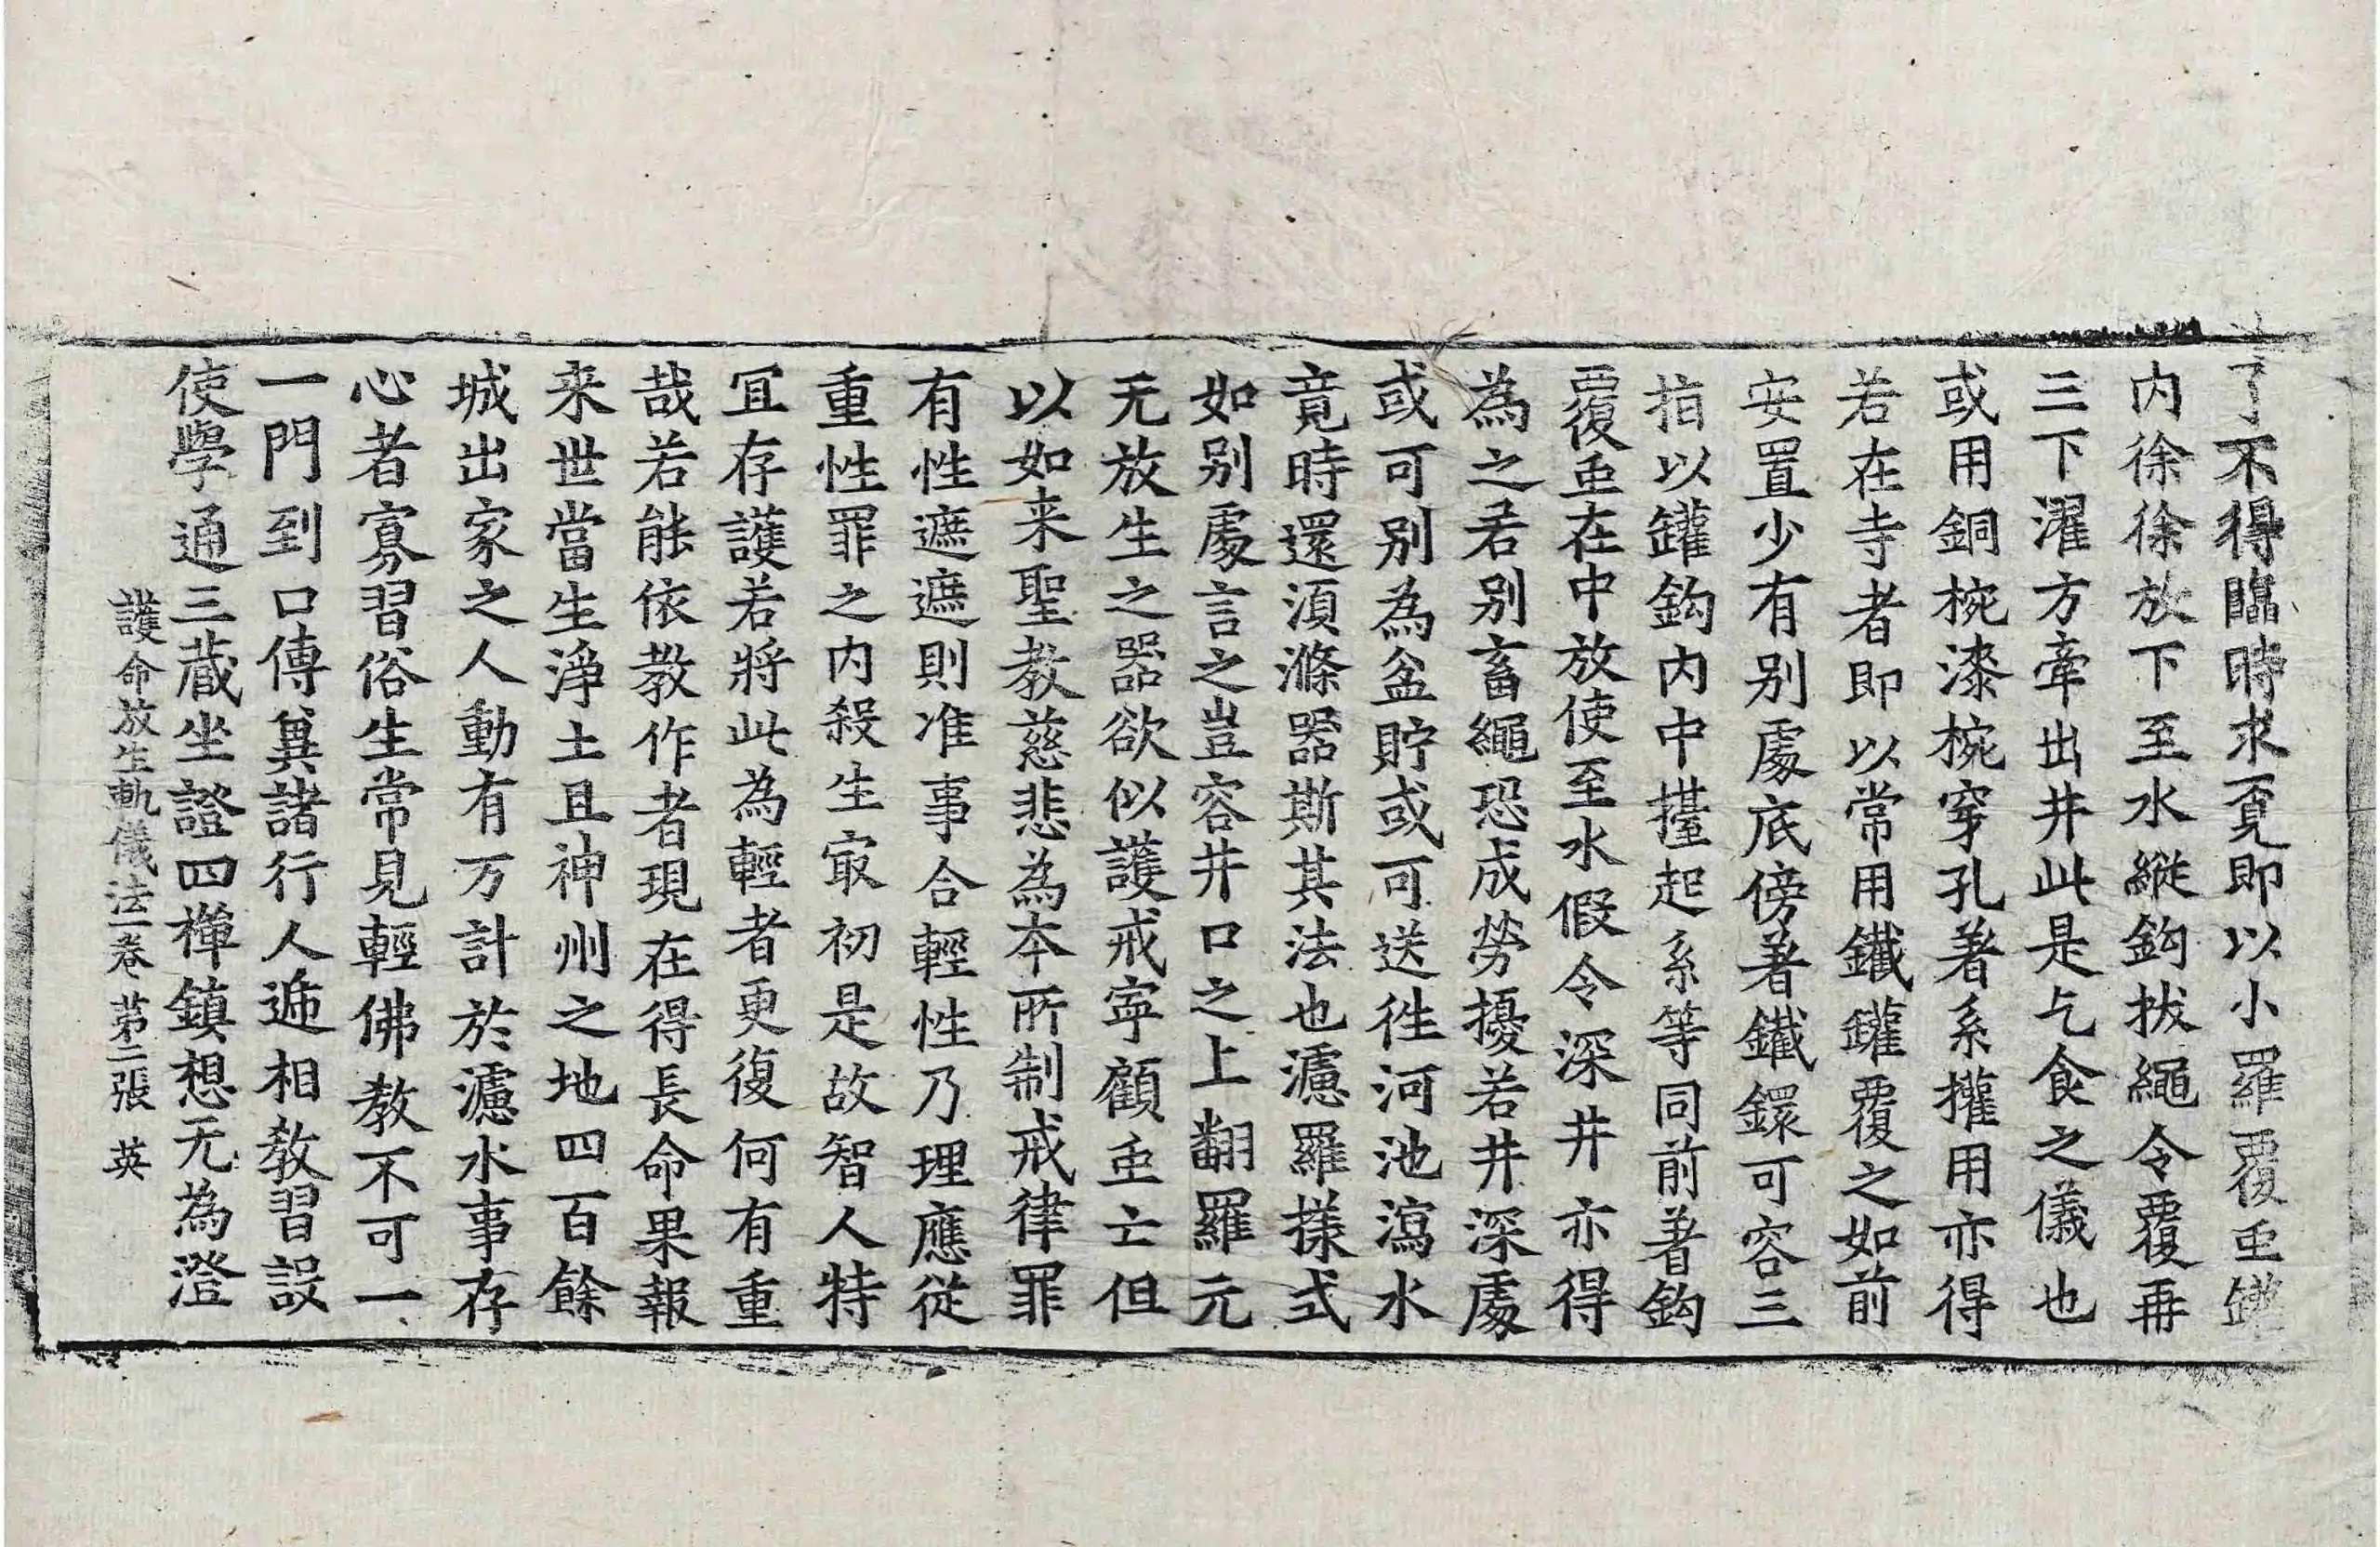 了不得臨時求覓即以小羅覆䖝罐
内徐徐放下至水縱鈎拔繩令覆再
三下濯方牽出井此是乞食之儀也
或用銅椀漆椀穿孔著系攉用亦得
若在寺者即以常用鐵罐覆之如前
安置少有别處底傍著鐵鐶可容三
指以罐鈎内中擡起系等同前著鈎
覆䖝在中放使至水假令深井亦得
為之君别畜繩恐成勞擾若井深處
或可别為盆貯或可送徃河池瀉水
竟時還湏滌器斯其法也濾羅㨾式
如别處言之豈容井口之上翻羅元
无放生之器欲似護戒寧顧䖝亡但
以如来聖教慈悲為本所制戒律罪
有性遮遮則准事合輕性乃理應從
重性罪之内殺生冣初是故智人特
冝存護若將此為輕者更復何有重
哉若能依教作者現在得長命果報
来世當生淨土且神州之地四百餘
城出家之人動有万計於濾水事存
心者寡習俗生常見輕佛教不可一
一門到口傳兾諸行人遞相教習設
使學通三蔵坐證四禪鎮想无為澄
護命放生軌儀法一卷 第二張 英